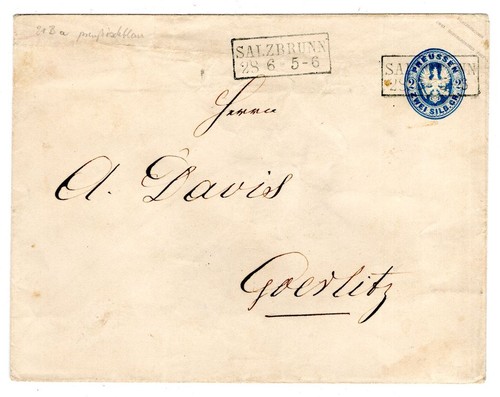 preußischblau
SALZBRUNN
28 6 5-6
SALZBRUNN
PREUSSEN
2 2
ZWEI SILB.GR.
Herrn
A. Davis
Goerlitz